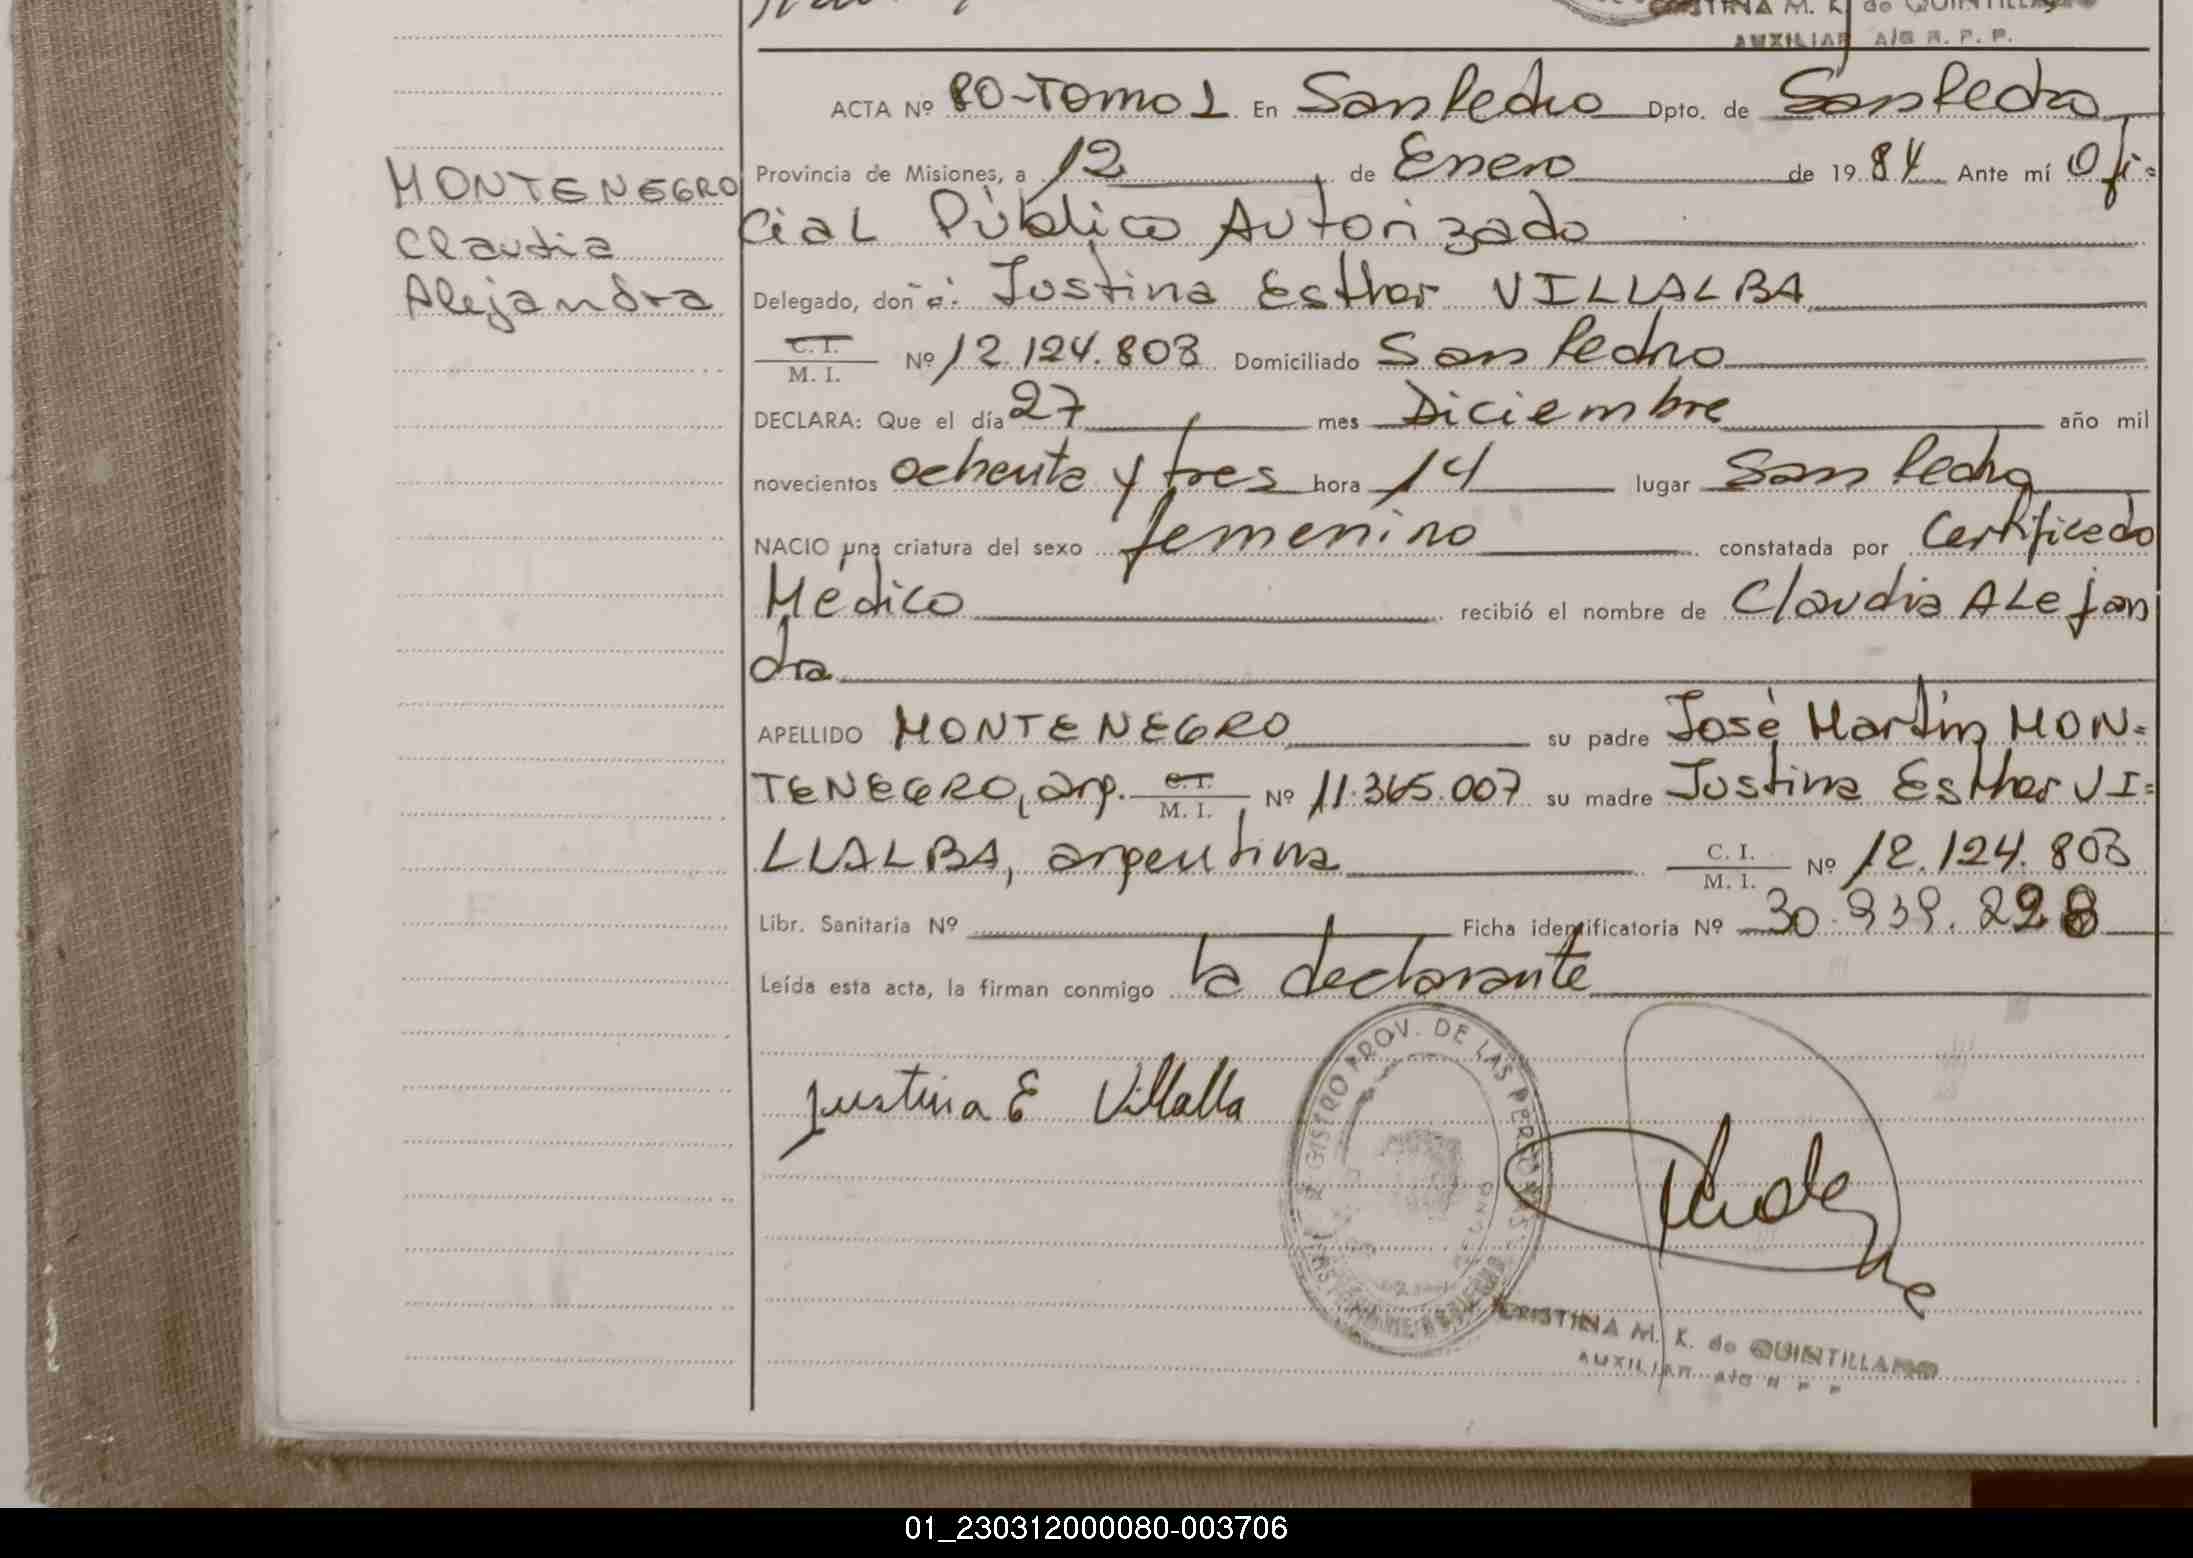 CRISTINA M. K. de QUINTILLANO
AUXILIAR A/C R. P. P.
ACTA Nº 80-Tomo 1 En San Pedro Dpto. de San Pedro
Provincia de Misiones, a 12 de Enero de 1984 Ante mí Ofi=
cial Público Autorizado
MONTENEGRO
Claudia
Alejandra
Delegado, doña: Justina Esther VILLALBA
C. I.
M. I. Nº 12.124.803 Domiciliado San Pedro
DECLARA: Que el día 27 mes Diciembre año mil
novecientos ochenta y tres hora 14 lugar San Pedro
NACIO una criatura del sexo femenino constatada por Certificado
Médico recibió el nombre de Claudia Alejan
dra
APELLIDO MONTENEGRO su padre José Martín MON=
TENEGRO, arg. C. I. M. I. Nº 11.365.007 su madre Justina Esther VI=
LLALBA, argentina C. I. M. I. Nº 12.124.803
Libr. Sanitaria Nº Ficha identificatoria Nº 30.939.228
Leída esta acta, la firman conmigo la declarante
Justina E Villalba
REGISTRO PROV. DE LAS PERSONAS
CRISTINA M. K. de QUINTILLANO
AUXILIAR A/C R P P
01_230312000080-003706